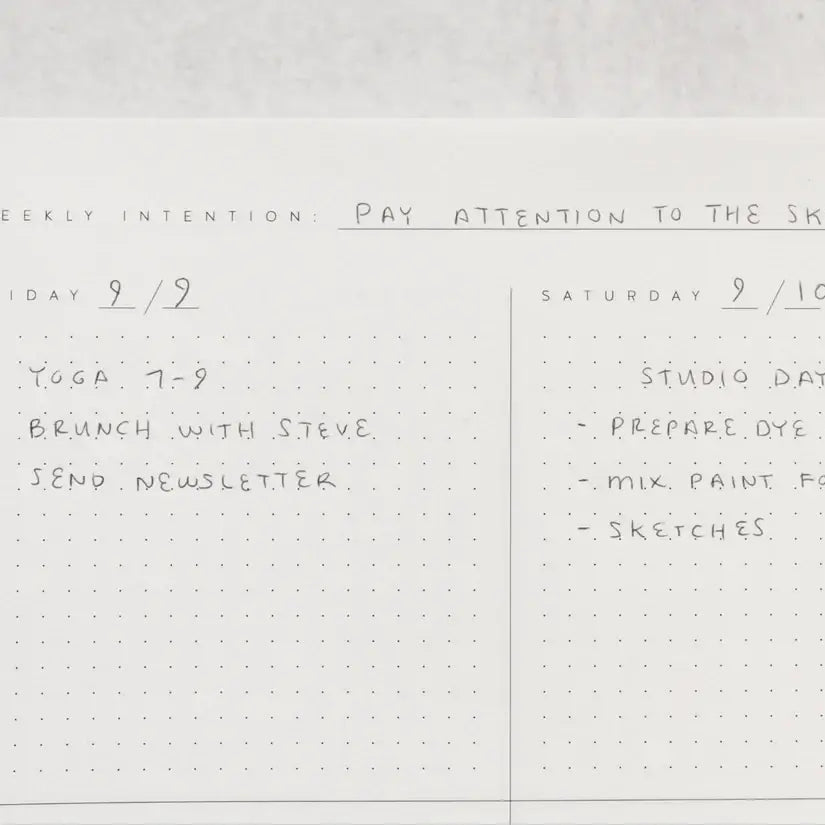 EEKLY INTENTION: PAY ATTENTION TO THE SK
IDAY 9/9
YOGA 7-9
BRUNCH WITH STEVE
SEND NEWSLETTER
SATURDAY 9/10
STUDIO DAY
- PREPARE DYE
- MIX PAINT FO
- SKETCHES